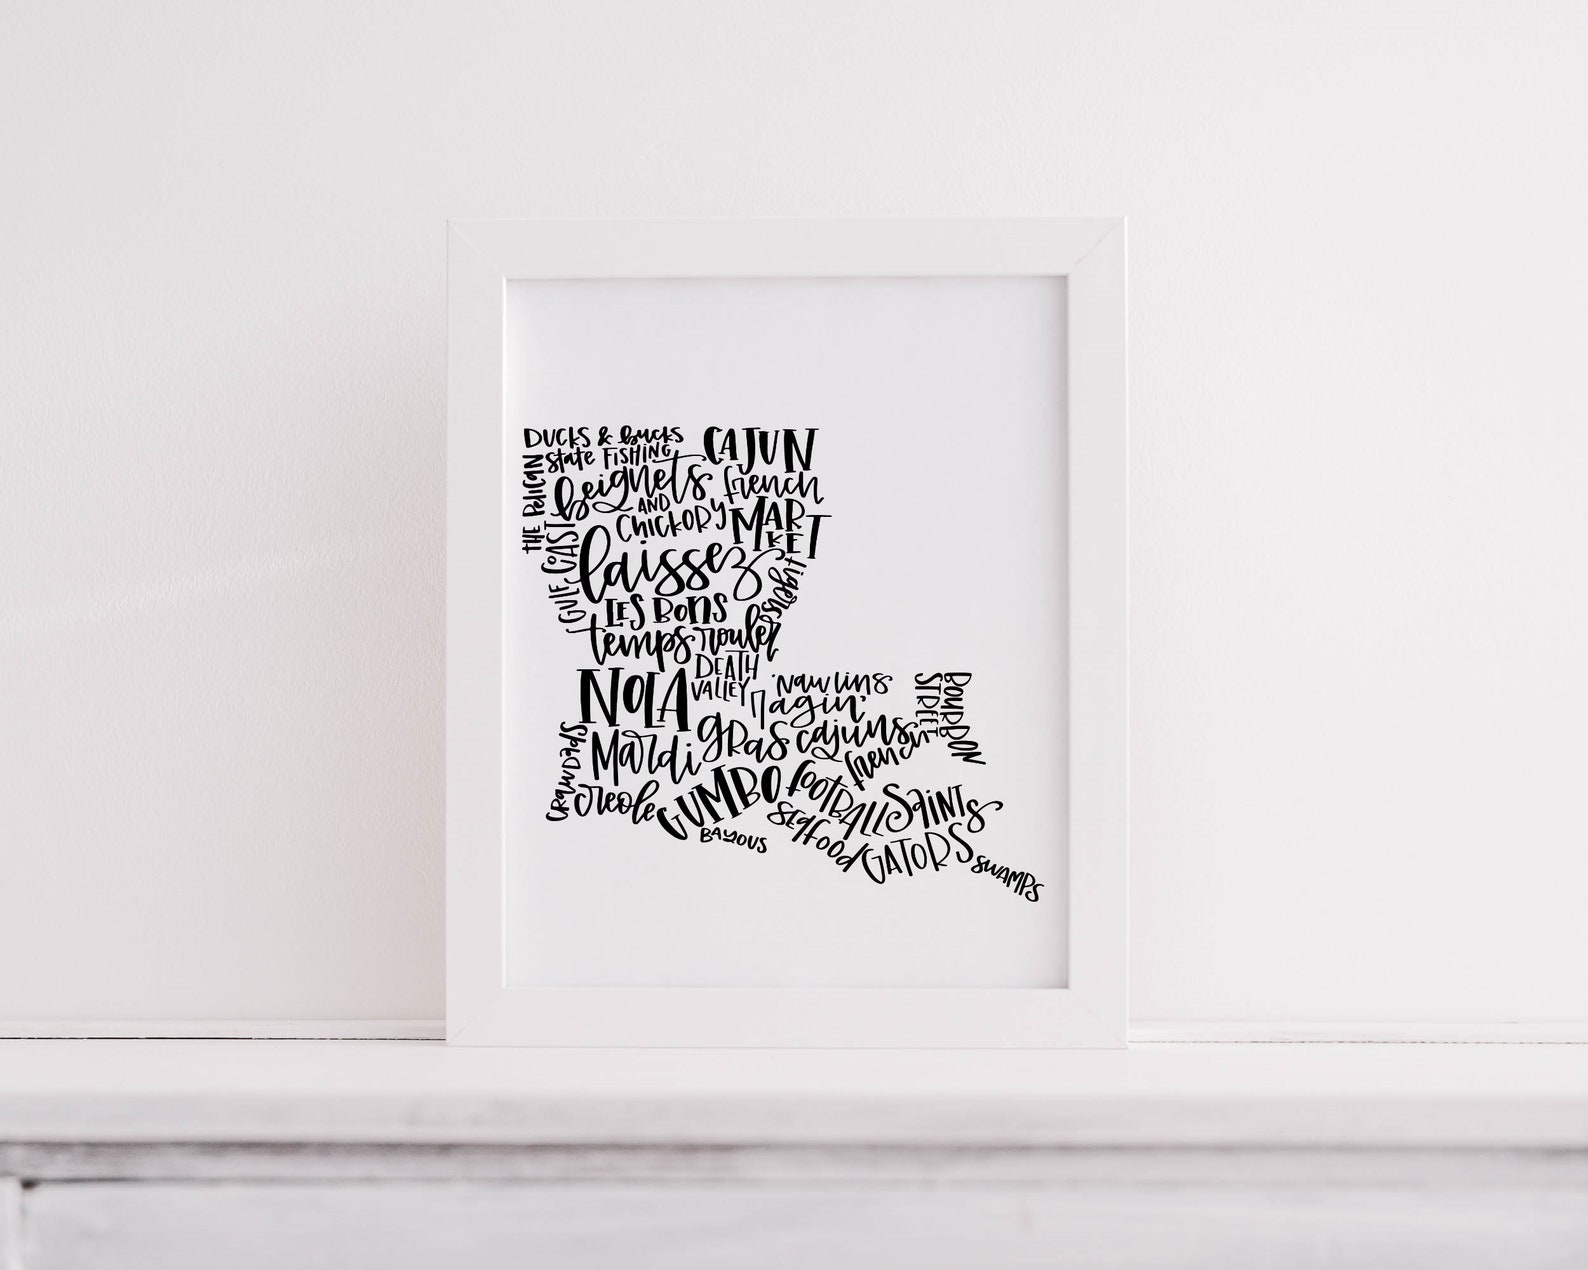 DUCKS & bucks
CAJUN
State FISHING
THE PELICAN
beignets
french
AND
CHICKORY
MARKET
GULF COAST
laissez
tigers
LES BONS
temps rouler
DEATH
VALLEY
NOLA
'Nawlins
BOURBON
STREET
Ragin'
Mardi gRAS
cajuns
french
CRAWDADS
creole
GUMBO
fooTBALL
SAINTS
SEAFOOD
BAYOUS
GATORS
SWAMPS